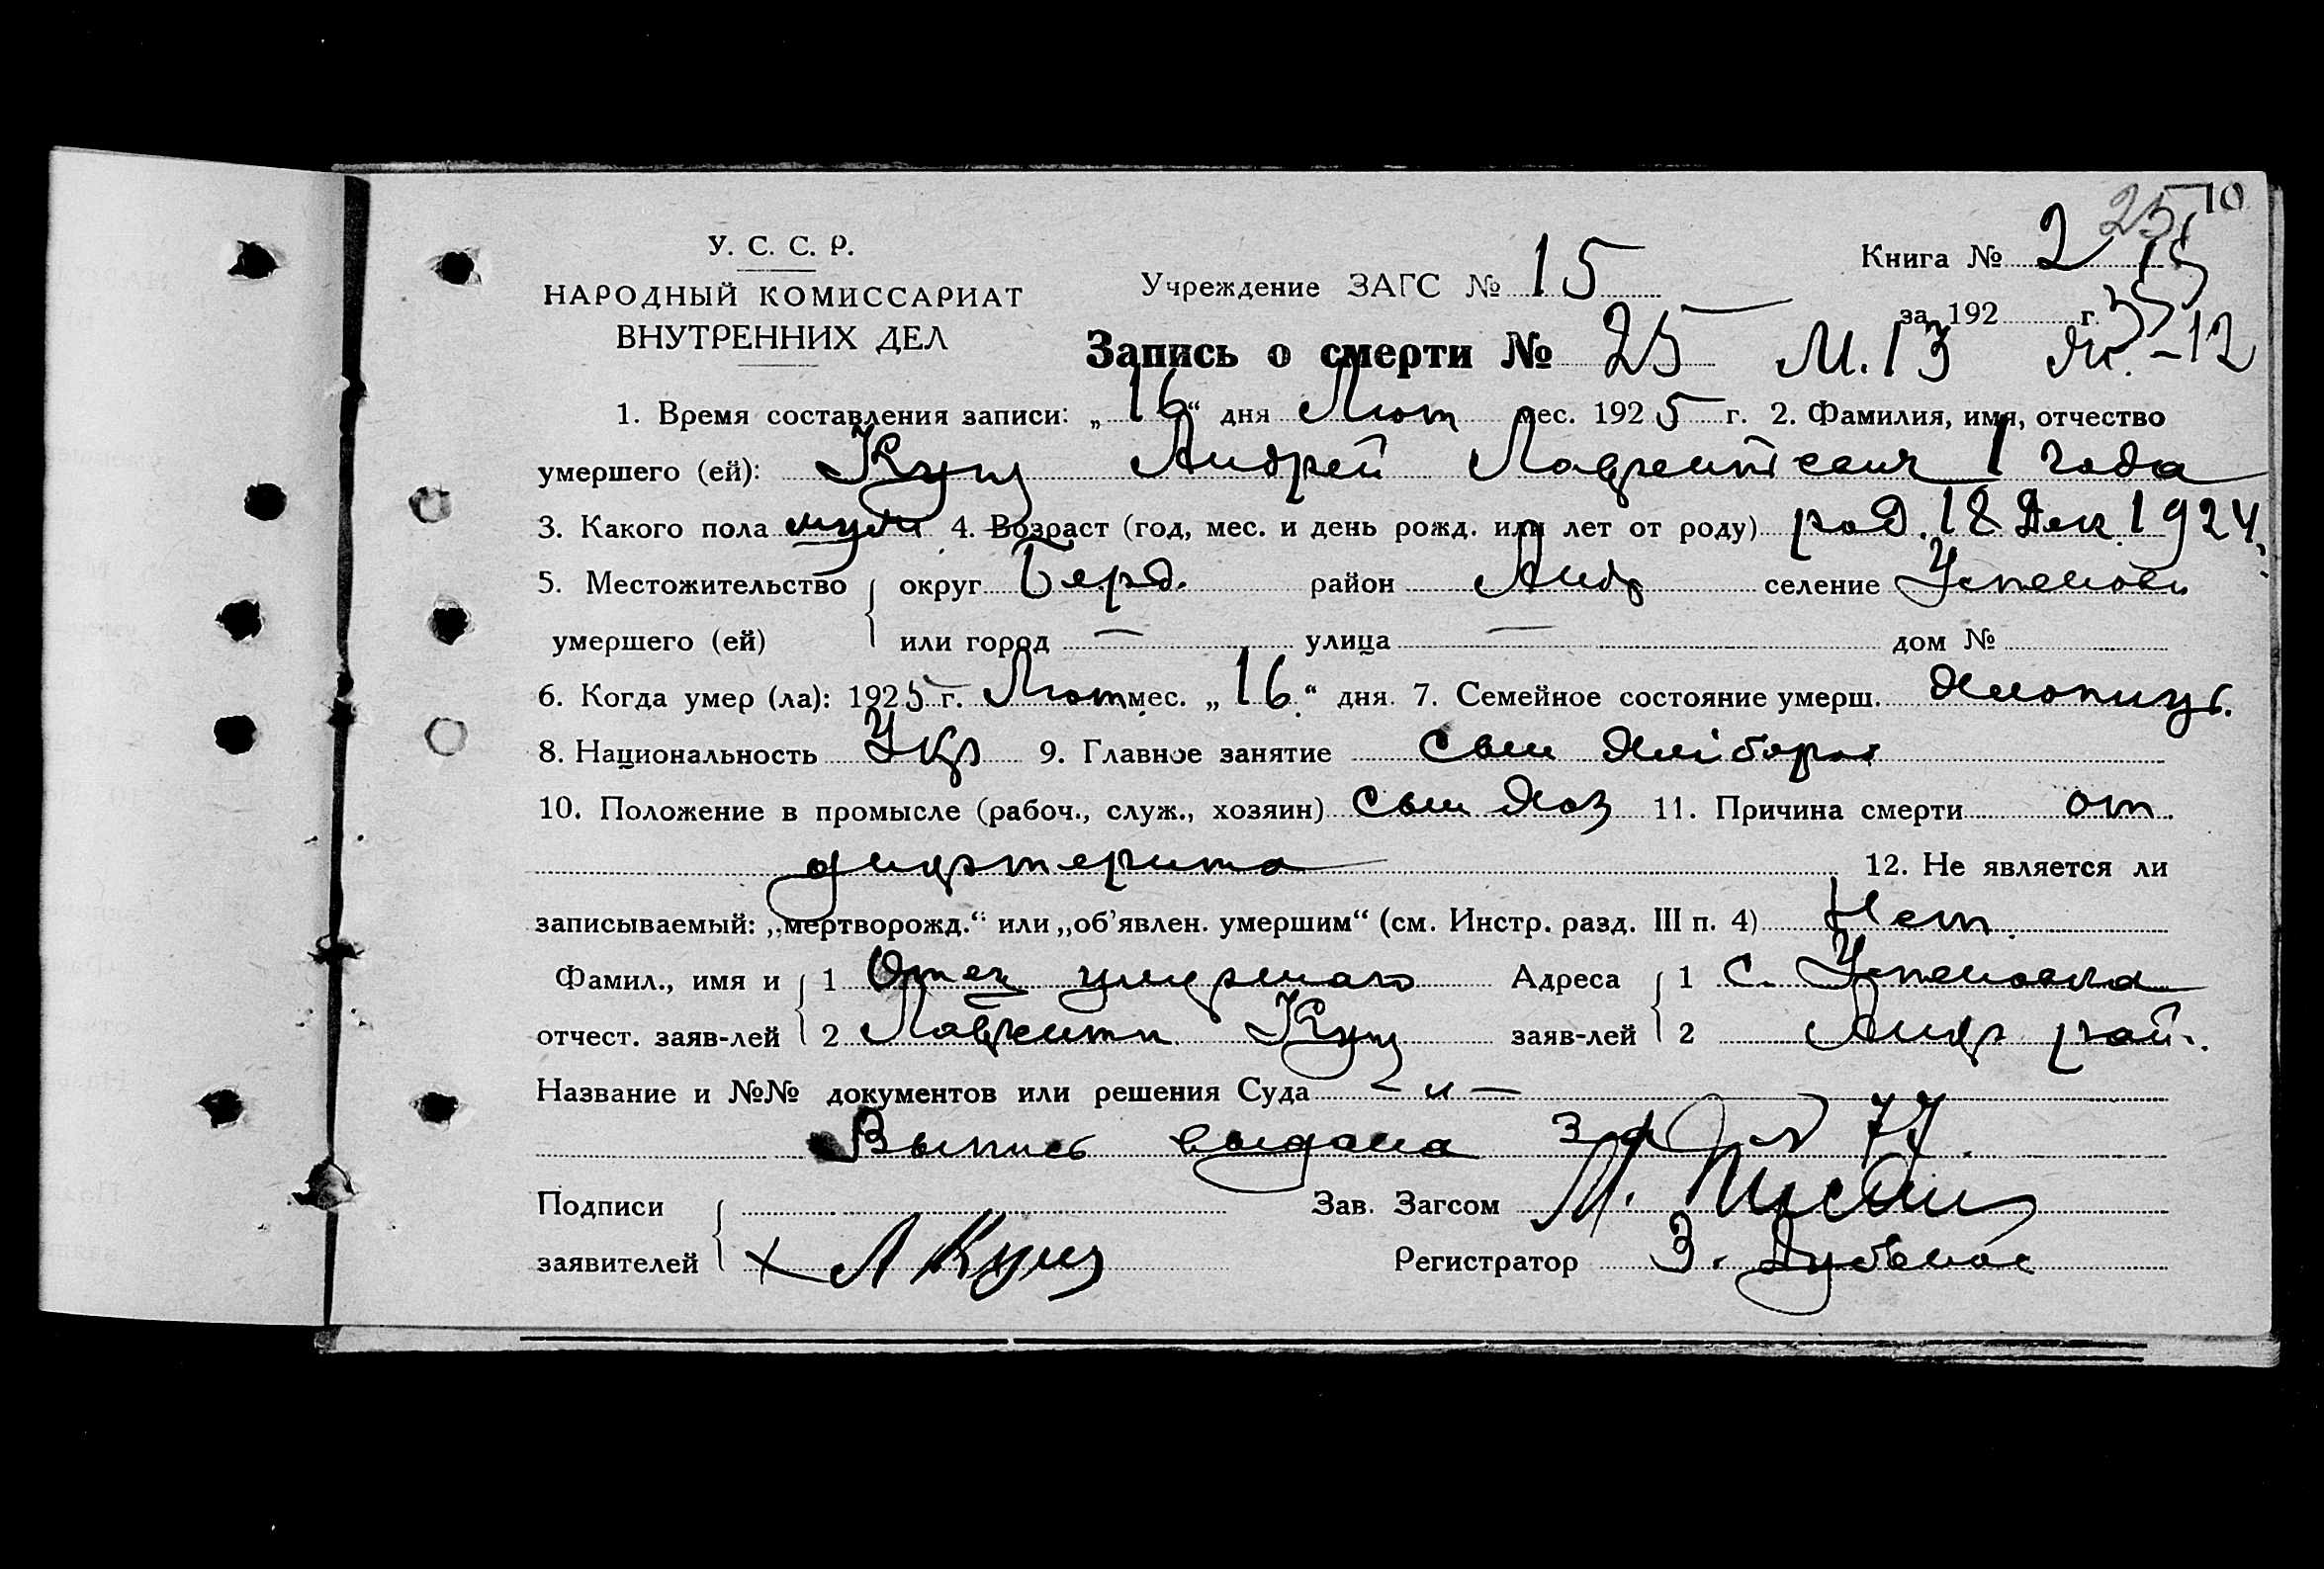 25 10
У. С. С. Р.
НАРОДНЫЙ КОМИССАРИАТ
ВНУТРЕННИХ ДЕЛ
Учреждение ЗАГС № 15
Книга № 2
за 192 г.
Запись о смерти № 25 М. 13 – 12
1. Время составления записи: „16“ дня Лют мес. 1925 г. 2. Фамилия, имя, отчество
умершего (ей): Кущ Андрей Лаврентієвич 1 года
3. Какого пола муж 4. Возраст (год, мес. и день рожд. или лет от роду) род. 18 Дек. 1924.
5. Местожительство округ Берд. район Андр селение Успеновк
умершего (ей) или город — улица — дом №
6. Когда умер (ла): 1925 г. Лют мес. „16“ дня. 7. Семейное состояние умерш.
8. Национальность Укр 9. Главное занятие Сын Хлібороб
10. Положение в промысле (рабоч., служ., хозяин) Сын Хоз 11. Причина смерти от
дифтерита 12. Не является ли
записываемый: „мертворожд.“ или „об’явлен. умершим“ (см. Инстр. разд. III п. 4) Нет.
Фамил., имя и 1 Отец умершаго Адреса 1 С. Успеновка
отчест. заяв-лей 2 Лаврентий Кущ заяв-лей 2 Андр рай.
Название и №№ документов или решения Суда – и –
Выпись выдана 77.
Подписи Зав. Загсом
заявителей х Л Кущ Регистратор З.